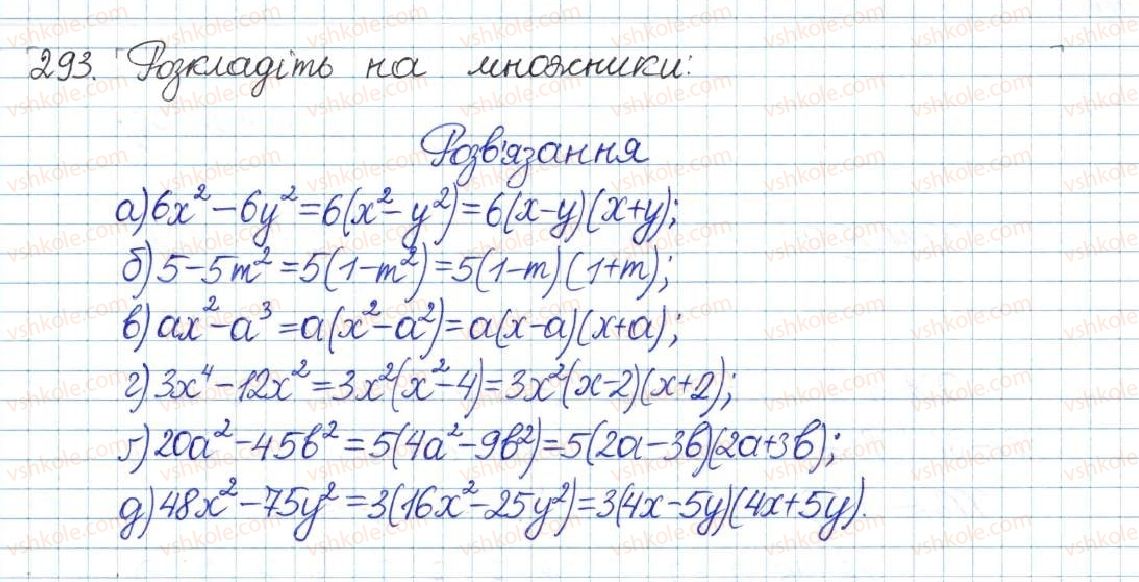 293. Розкладіть на множники:
Розв'язання
а) 6x² – 6y² = 6(x² – y²) = 6(x – y)(x + y);
б) 5 – 5m² = 5(1 – m²) = 5(1 – m)(1 + m);
в) ax² – a³ = a(x² – a²) = a(x – a)(x + a);
г) 3x⁴ – 12x² = 3x²(x² – 4) = 3x²(x – 2)(x + 2);
ґ) 20a² – 45b² = 5(4a² – 9b²) = 5(2a – 3b)(2a + 3b);
д) 48x² – 75y² = 3(16x² – 25y²) = 3(4x – 5y)(4x + 5y).
vshkole.com